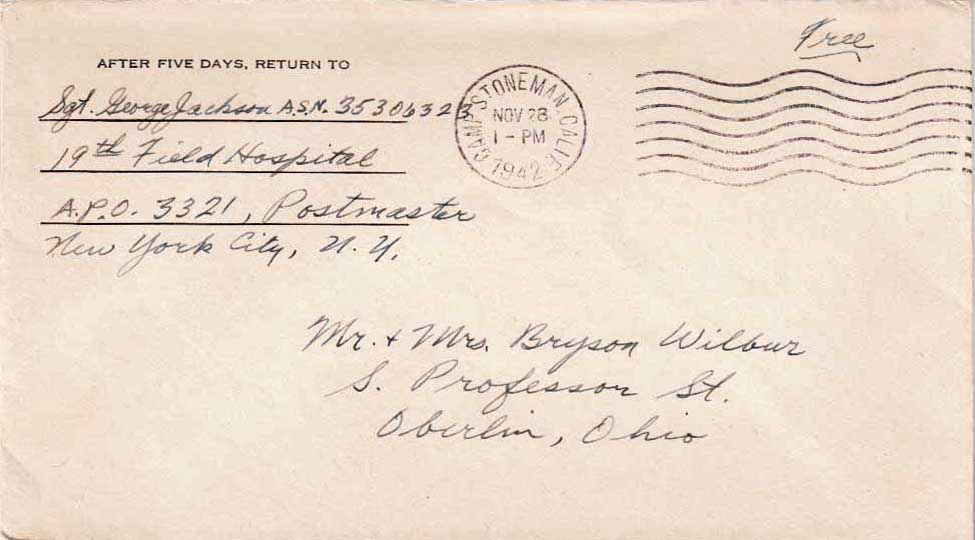 Free
AFTER FIVE DAYS, RETURN TO
Sgt. George Jackson A.S.N. 35306323
19th Field Hospital
A.P.O. 3321, Postmaster
New York City, N.Y.
CAMP STONEMAN, CALIF.
NOV 28
1 - PM
1942
Mr. + Mrs. Bryson Wilbur
S. Professor St.
Oberlin, Ohio